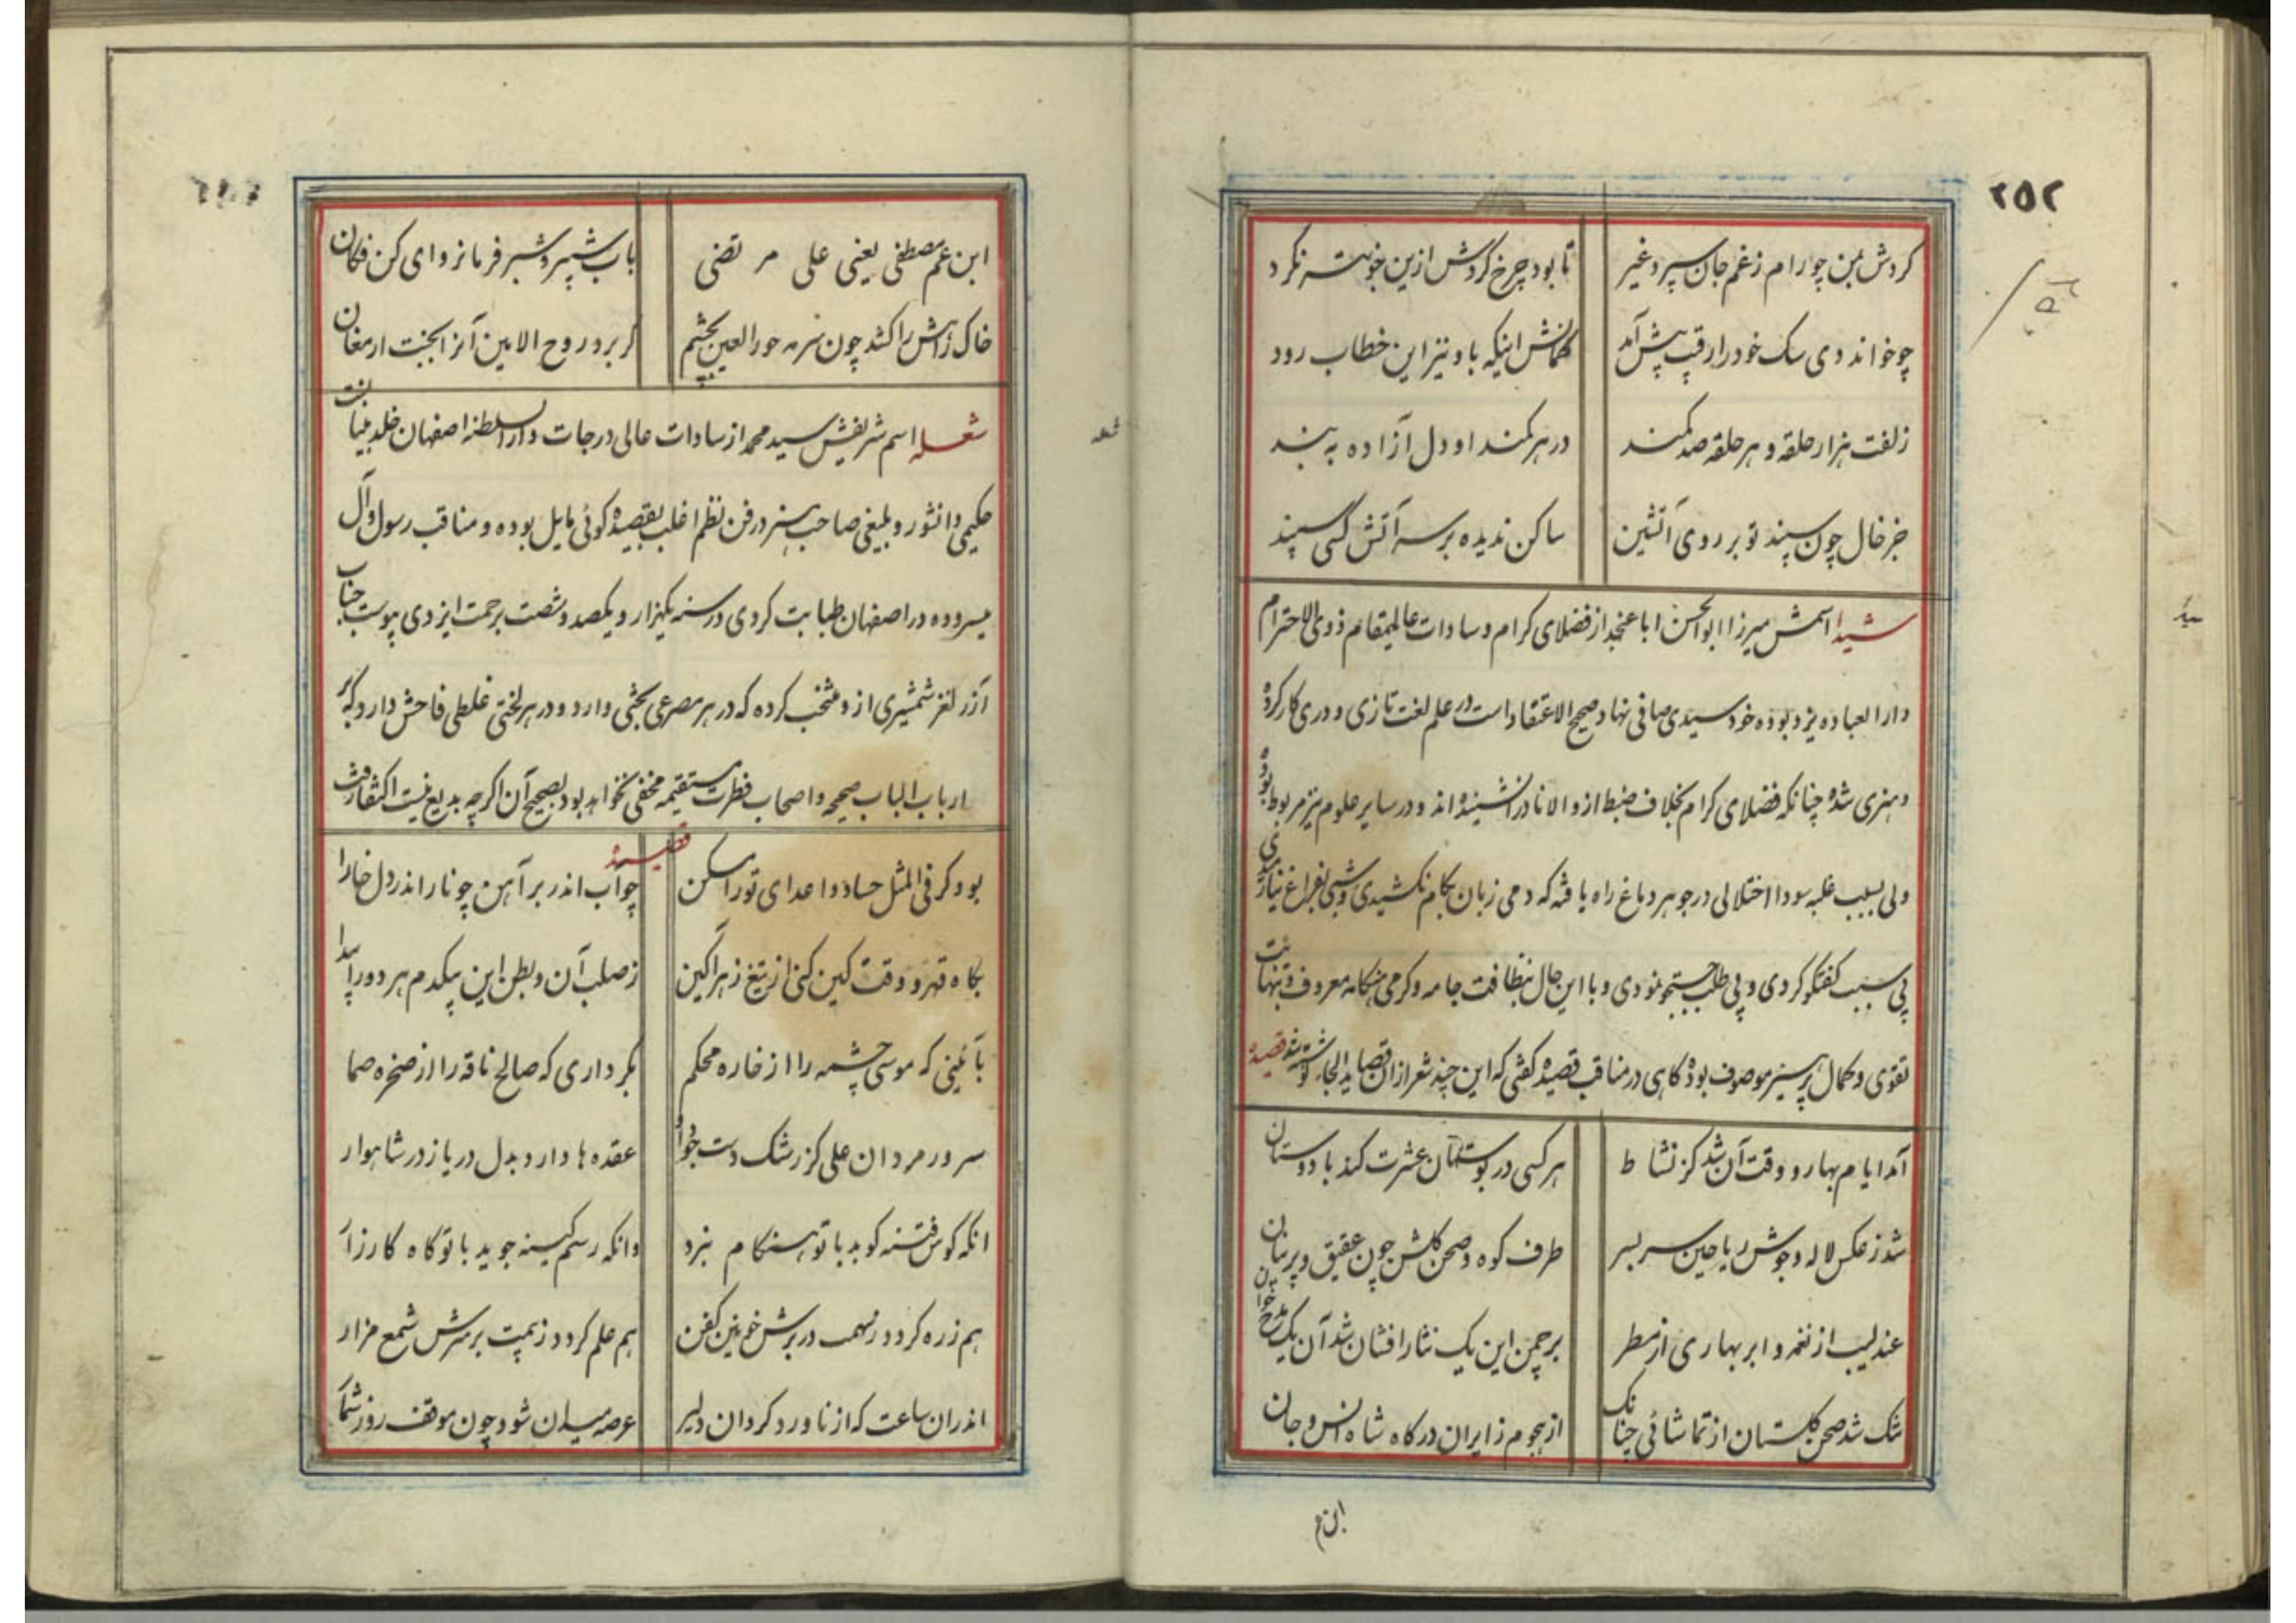 ۲۵۲
گردش بمن چو رام ز غم جان سپرد غیر تا بود چرخ گردش ازین خوبتر نکرد
چو خواند دی سگ خود را رقیب پیش آمد گمانش اینکه باو نیز این خطاب رود
زلفت هزار حلقه و هر حلقه صد کمند در هر کمند او دل آزاده به بند
جز خال چون سپند تو بر روی آتشین ساکن ندیده بر سر آتش کسی سپند
شیدا اسمش میرزا ابوالحسن اباعنجد از فضلای کرام و سادات عالیمقام ذوی الاحترام
دارالعباده یزد بوده خود سیدی صافی نهاد و صحیح الاعتقاد است در علم لغت تازی و دری کار کرده
و هنری شده چنانکه فضلای کرام بخلاف ضبط ازو الا نادرا نشنیده اند و در سایر علوم نیز مربوط بوده
ولی بسبب غلبه سودا اختلالی در جوهر دماغ راه یافته که دمی زبان بکام نکشیدی و شبی بفراغ نیارمیدی
بی سبب گفتگو کردی و بی طلب جستجو نمودی و با این حال بنظافت جامه و گرمی هنگامه معروف و بنهایت
تقوی و کمال پرهیز موصوف بود گاهی در مناقب قصیده گفتی که این چند شعر از آن قصاید اینجا نوشته شد قصیده
آمد ایام بهار و وقت آن شد کز نشاط هر کسی در بوستان عشرت کند با دوستان
شد ز عکس لاله و جوش ریاحین سر بسر طرف کوه و صحن گلشن چون عقیق و پرنیان
عندلیب از نغمه و ابر بهاری از مطر بر چمن این یک نثار افشان شد آن یک مدح خوان
تنگ شد صحن گلستان از تماشائی چنانک از هجوم زایران درگاه شاه انس و جان
ابن عم
ابن عم مصطفی یعنی علی مرتضی باب شبیر و شبر فرمانروای کن فکان
خاک راهش را کشد چون سرمه حورالعین بچشم گر برد روح الامین آنرا بجنت ارمغان
شعله
شعله اسم شریفش سید محمد از سادات عالی درجات دارالسلطنه اصفهان خلد بنیانست
حکیمی دانشور و بلیغی صاحب هنر در فن نظم اغلب بقصیده گوئی مایل بوده و مناقب رسول و آل
میسروده در اصفهان طبابت کردی در سنه یکهزار و یکصد و شصت برحمت ایزدی پیوست جناب
آذر لغز شمشیری ازو منتخب کرده که در هر مصرعی بحثی وارد و در هر لختی غلطی فاحش دارد که بر
ارباب الباب صحیحه و اصحاب فطرت مستقیمه مخفی نخواهد بود تصحیح آن اگرچه بدیع نیست اکتفا رفت
قصیده
بود گر فی المثل حساد و اعدای تو را مسکن چو آب اندر بر آهن چو نار اندر دل خارا
بگاه قهر و وقت کین کنی از تیغ زهرآگین ز صلب آن و بطن این بیکدم هر دو را پیدا
بآئینی که موسی چشمه را از خاره محکم بکرداری که صالح ناقه را از صخره صما
سرور مردان علی کز رشک دست جود او عقده ها دارد بدل دریا ز در شاهوار
انکه کوس فتنه کوبد با تو هنگام نبرد وانکه رسم کینه جوید با تو گاه کارزار
هم زره گردد ز سهمت در برش خونین کفن هم علم گردد ز بیمت بر سرش شمع مزار
اندران ساعت که از ناورد گردان دلیر عرصه میدان شود چون موقف روز شمار